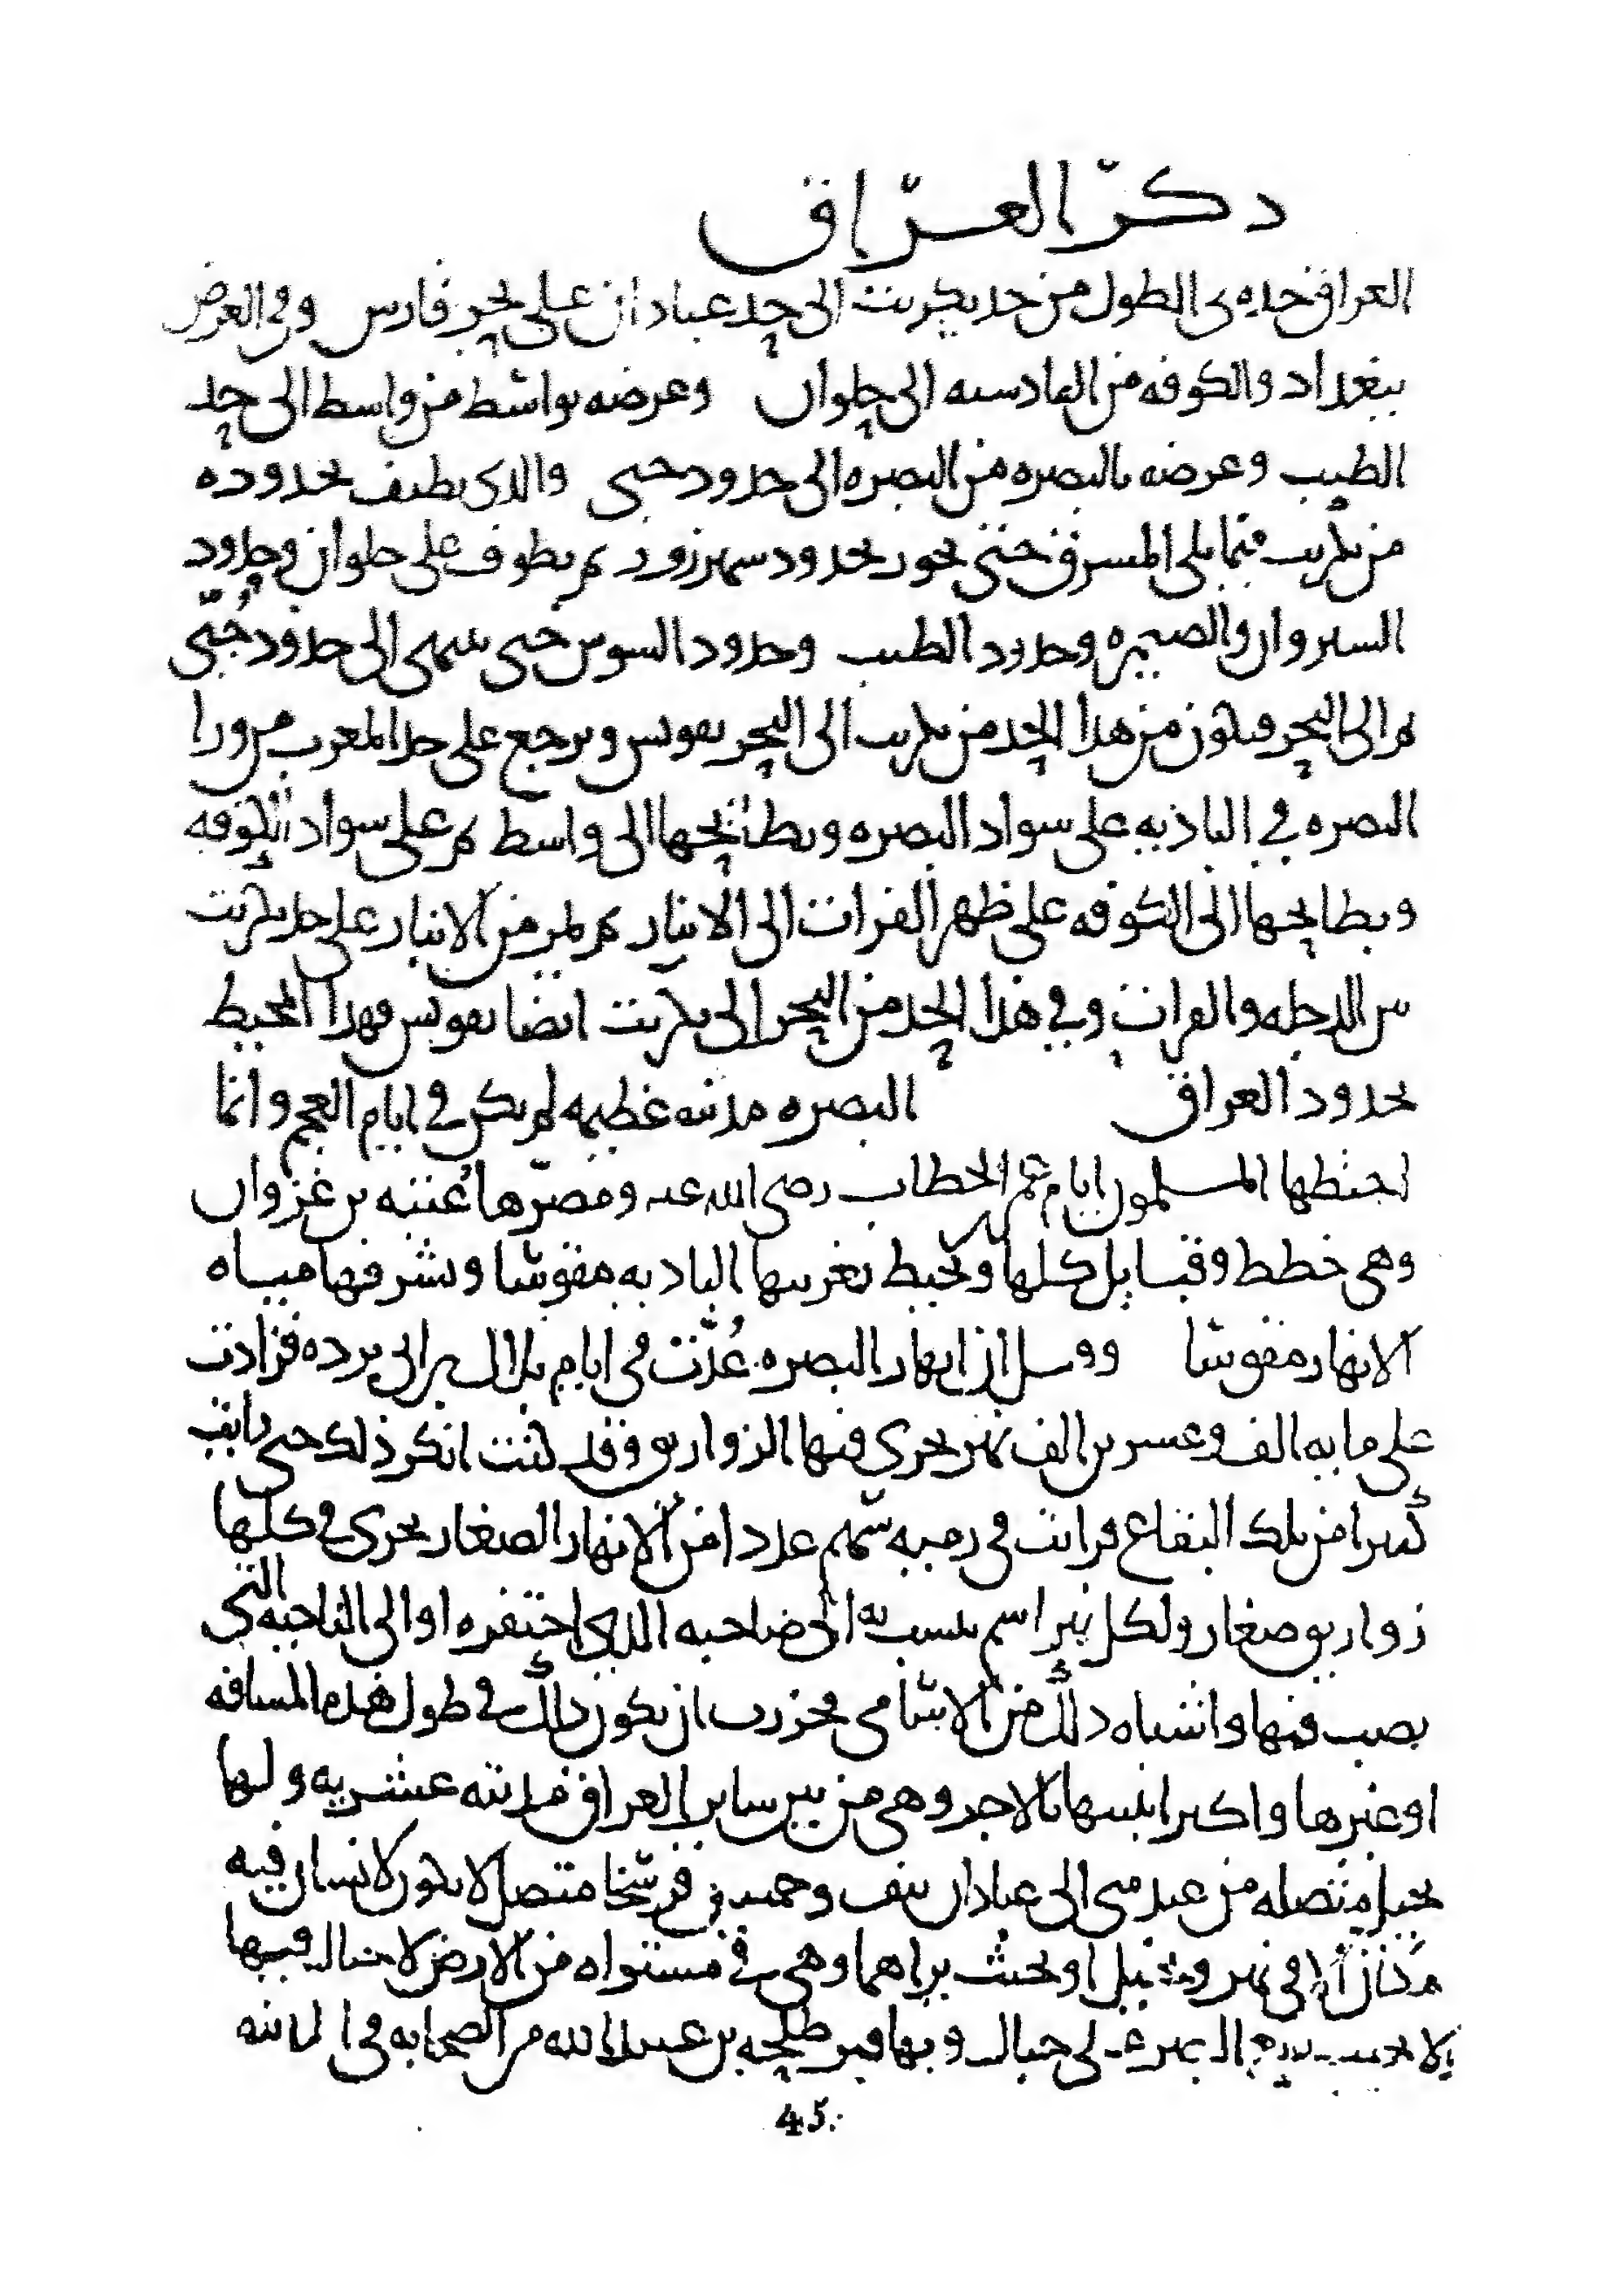 ذكر العراق
العراق حده في الطول من حد تكريت الى حد عبادان على بحر فارس وفي العرض
ببغداد والكوفه من القادسيه الى حلوان وعرضه بواسط من واسط الى حد
الطيب وعرضه بالبصره من البصره الى حدود جبى والذي يطيف بحدوده
من تكريت فيما يلى المشرق حتى يجوز بحدود شهرزور ثم يطوف على حلوان وحدود
السيروان والصيمره وحدود الطيب وحدود السوس حتى ينتهى الى حدود جُبّى
ثم الى البحر فيكون من هذا الحد من تكريت الى البحر تقويس ويرجع على حد المغرب من ورا
البصره في الباديه على سواد البصره وبطائحها الى واسط ثم على سواد الكوفه
وبطايحها الى الكوفه على ظهر الفرات الى الانبار ثم يمر من الانبار على حد تكريت
بين الدجله والفرات وفي هذا الحد من البحر الى تكريت ايضا تقويس فهذا المحيط
بحدود العراق البصره مدينه عظيمه لم يكن في ايام العجم وانما
اختطها المسلمون ايام عمر بن الخطاب رضى الله عنه ومصّرها عُتبه بن غزوان
وهي خطط وقبايل كلها ويحيط بغربيها الباديه مقوسا وبشرقها مياه
الانهار مقوسا وقيل ان انهار البصره عُدّت في ايام بلال بن ابى برده فزادت
على مايه الف وعشرين الف نهر يجري فيها الزواريق وقد كنت انكر ذلك حتى رايت
كثيرا من تلك البقاع فرايت في رميه سهم عددا من الانهار الصغار يجرى في كلها
زواريق صغار ولكل نهر اسم ينسب به الى صاحبه الذي احتفره او الى الناحيه التي
يصب فيها واشباه ذلك من الاسامى فجوزت ان يكون ذلك في طول هذه المسافه
او غيرها واكثر ابنيتها بالاجر وهي من بين ساير العراق مدينه عشريه ولها
نخيل متصله من عبدسى الى عبادان نيف وخمسين فرسخا متصل لا يكون الانسان فيه
مكان الا في نهر ونخيل او بحيث يراهما وهي في مستواه من الارض لا جبال فيها
ولا بحيث يقع البصر على جبال وبها قبر طلحه بن عبيد الله من الصحابه في المدينه
45